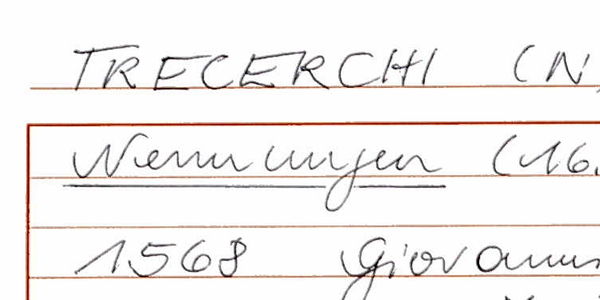 TRECERCHI (N,
Nennungen (16.
1568 Giovanni